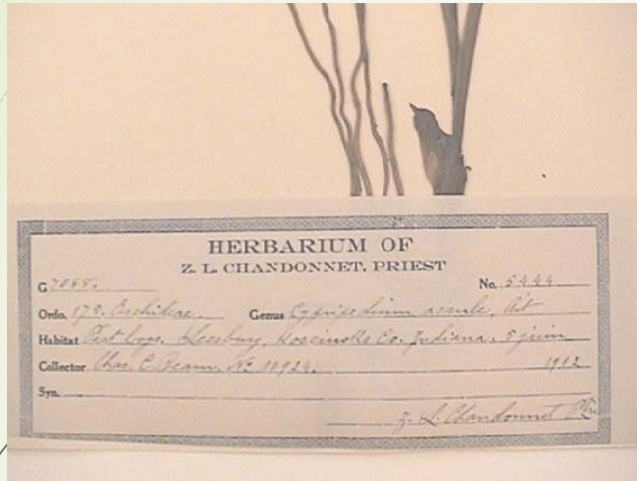 HERBARIUM OF
Z. L. CHANDONNET, PRIEST
G 7055. No. 5444
Ordo. 175. Orchideae. Genus Cypripedium acaule, Ait
Habitat Peat bogs. Leesburg, Kosciusko Co. Indiana. 5 juin
Collector Chas. C. Deam. No. 10924. 1912
Syn.
Z. L. Chandonnet